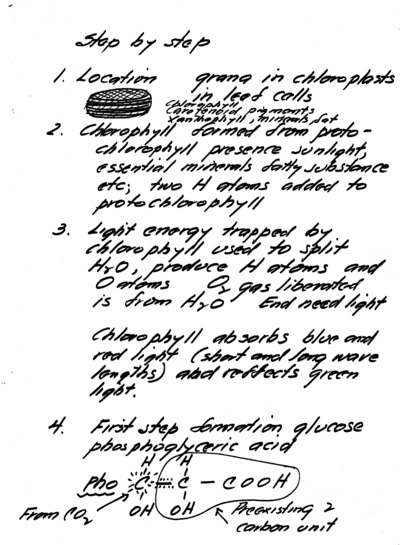 Step by step
1. Location grana in chloroplasts
in leaf calls
Chlorophyll
Carotenoid pigments
Xanthophyll, minerals, fat
2. Chlorophyll formed from proto-
chlorophyll presence sunlight,
essential minerals fatty substance
etc; two H atoms added to
protochlorophyll
3. Light energy trapped by
chlorophyll used to split
H2O, produce H atoms and
O atoms O2 gas liberated
is from H2O End need light
Chlorophyll absorbs blue and
red light (short and long wave
lengths) and reflects green
light.
4. First step formation glucose
phosphoglyceric acid
H H
Pho C C - COOH
From CO2 OH OH Preexisting 2
carbon unit